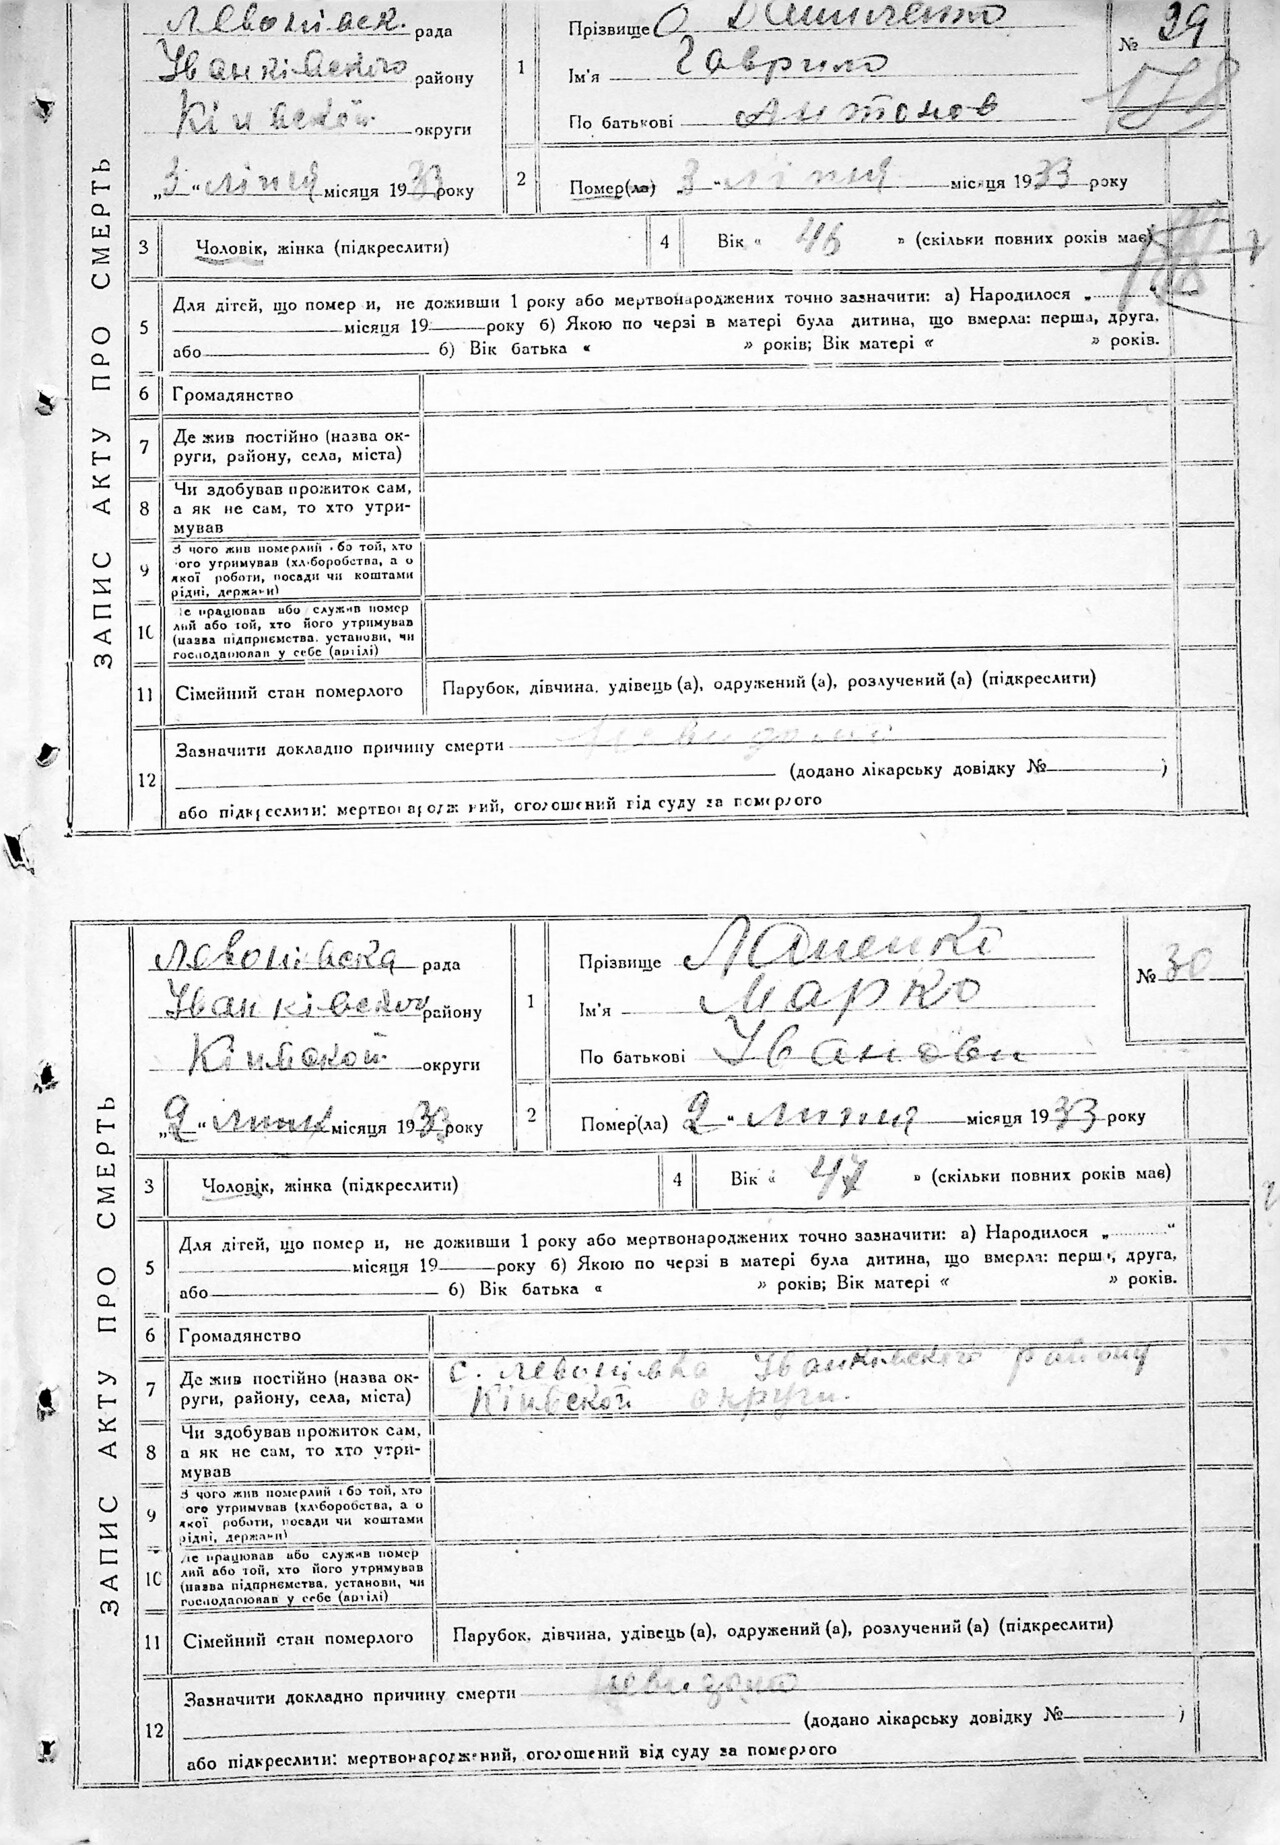 ЗАПИС АКТУ ПРО СМЕРТЬ
Левонівск. рада
Іванківського району
Київской округи
„3“ ліпня місяця 1933 року
1
Прізвище
Ім'я Гаврило
По батькові Антонов
№ 29
178
2
Помер(ла) 3 “ ліпня місяця 1933 року
3 Чоловік, жінка (підкреслити)
4 Вік « 46 » (скільки повних років має)
5 Для дітей, що помер и, не доживши 1 року або мертвонароджених точно зазначити: а) Народилося „ “
місяця 19 року б) Якою по черзі в матері була дитина, що вмерла: перша, друга,
або б) Вік батька « » років; Вік матері « » років.
6 Громадянство
7 Де жив постійно (назва ок-
руги, району, села, міста)
8 Чи здобував прожиток сам,
а як не сам, то хто утри-
мував
9 З чого жив померлий або той, хто
ого утримував (хліборобства, а о
якої роботи, посади чи коштами
рідні, держави)
10 Де працював або служив помер
лий або той, хто його утримував
(назва підприємства, установи, чи
господарював у себе (артілі)
11 Сімейний стан померлого Парубок, дівчина, удівець (а), одружений (а), розлучений (а) (підкреслити)
12 Зазначити докладно причину смерти
(додано лікарську довідку № )
або підкреслити: мертвонароджений, оголошений від суду за померлого
ЗАПИС АКТУ ПРО СМЕРТЬ
Левонівска рада
Іванківського району
Київской округи
„2“ місяця 1933 року
1
Прізвище
Ім'я Марко
По батькові Іванови
№ 30
2
Помер(ла) 2 “ липня місяця 1933 року
3 Чоловік, жінка (підкреслити)
4 Вік « 47 » (скільки повних років має)
5 Для дітей, що помер и, не доживши 1 року або мертвонароджених точно зазначити: а) Народилося „ “
місяця 19 року б) Якою по черзі в матері була дитина, що вмерла: перша, друга,
або б) Вік батька « » років; Вік матері « » років.
6 Громадянство
7 Де жив постійно (назва ок-
руги, району, села, міста)
с. Левонівка Іванківського району
Київской округи.
8 Чи здобував прожиток сам,
а як не сам, то хто утри-
мував
9 З чого жив померлий або той, хто
ого утримував (хліборобства, а о
якої роботи, посади чи коштами
рідні, держави)
10 Де працював або служив помер
лий або той, хто його утримував
(назва підприємства, установи, чи
господарював у себе (артілі)
11 Сімейний стан померлого Парубок, дівчина, удівець (а), одружений (а), розлучений (а) (підкреслити)
12 Зазначити докладно причину смерти невидомо
(додано лікарську довідку № )
або підкреслити: мертвонароджений, оголошений від суду за померлого